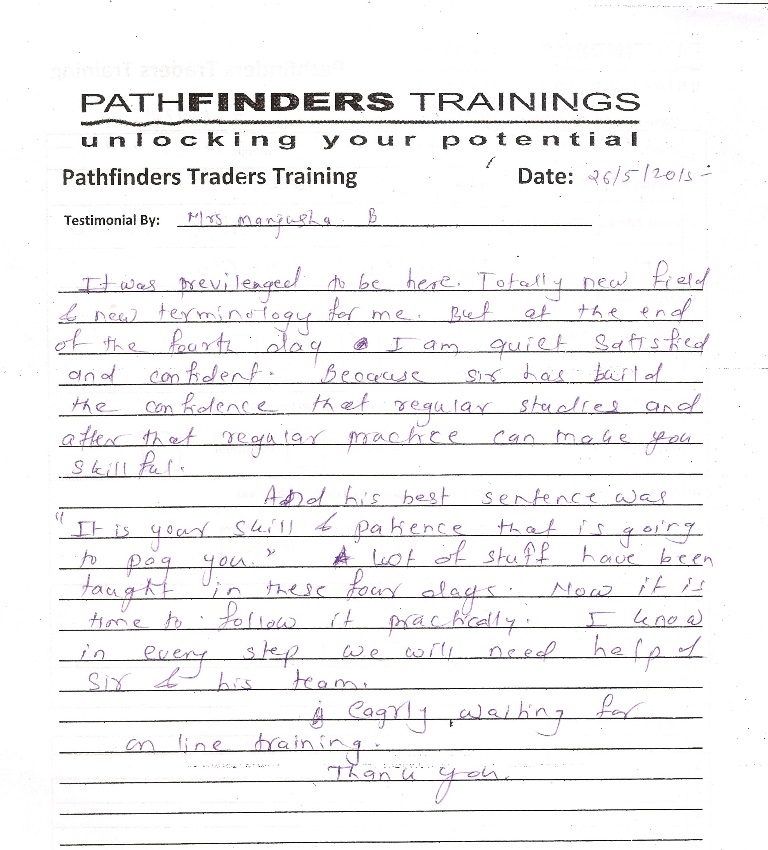 PATHFINDERS TRAININGS
unlocking your potential
Pathfinders Traders Training Date: 26/5/2015
Testimonial By: Mrs Manjusha B
It was previlenged to be here. Totally new field
& new terminology for me. But at the end
of the fourth day I am quiet Satisfied
and confident. Because sir has build
the confidence that regular studies and
after that regular practice can make you
skillful.
And his best sentence was
"It is your skill & patience that is going
to pay you." A lot of stuff have been
taught in these four days. Now it is
time to follow it practically. I know
in every step we will need help of
Sir & his team.
Eagrly waiting for
on line training.
Thank you.